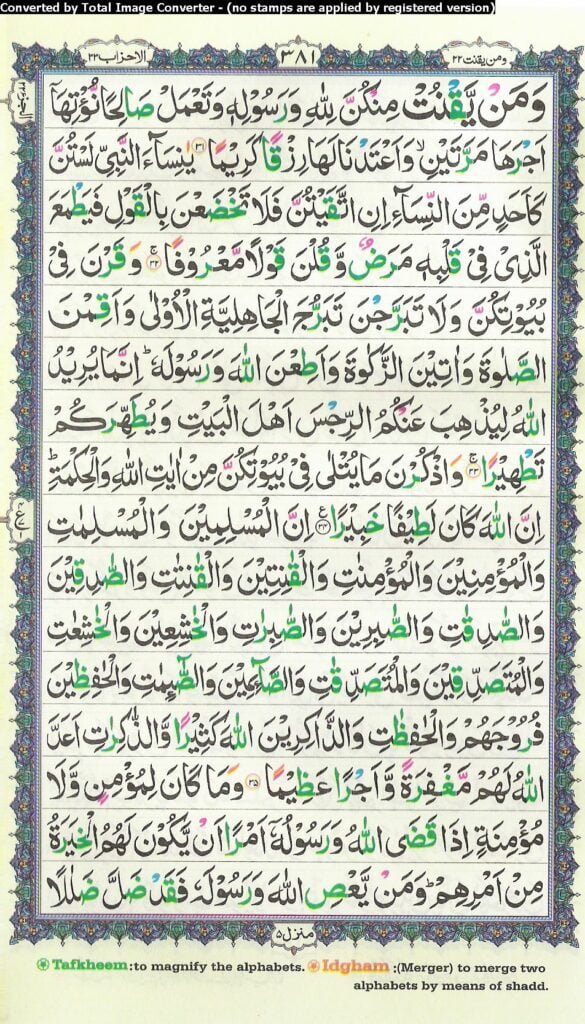 Converted by Total Image Converter - (no stamps are applied by registered version)
ومن یقنت ٢٢
٣٨١
الاحزاب ٣٣
وَمَنْ يَّقْنُتْ مِنْكُنَّ لِلّٰهِ وَرَسُوْلِهٖ وَتَعْمَلْ صَالِحًا نُّؤْتِهَاۤ
اَجْرَهَا مَرَّتَيْنِ ۙ وَاَعْتَدْنَا لَهَا رِزْقًا كَرِيْمًا ۝٣١ يٰنِسَآءَ النَّبِيِّ لَسْتُنَّ
كَاَحَدٍ مِّنَ النِّسَآءِ اِنِ اتَّقَيْتُنَّ فَلَا تَخْضَعْنَ بِالْقَوْلِ فَيَطْمَعَ
الَّذِيْ فِيْ قَلْبِهٖ مَرَضٌ وَّقُلْنَ قَوْلًا مَّعْرُوْفًا ۝٣٢ وَقَرْنَ فِيْ
بُيُوْتِكُنَّ وَلَا تَبَرَّجْنَ تَبَرُّجَ الْجَاهِلِيَّةِ الْاُوْلٰى وَاَقِمْنَ
الصَّلٰوةَ وَاٰتِيْنَ الزَّكٰوةَ وَاَطِعْنَ اللّٰهَ وَرَسُوْلَهٗ ؕ اِنَّمَا يُرِيْدُ
اللّٰهُ لِيُذْهِبَ عَنْكُمُ الرِّجْسَ اَهْلَ الْبَيْتِ وَيُطَهِّرَكُمْ
تَطْهِيْرًا ۝٣٣ وَاذْكُرْنَ مَا يُتْلٰى فِيْ بُيُوْتِكُنَّ مِنْ اٰيٰتِ اللّٰهِ وَالْحِكْمَةِ ؕ
اِنَّ اللّٰهَ كَانَ لَطِيْفًا خَبِيْرًا ۝٣٤ اِنَّ الْمُسْلِمِيْنَ وَالْمُسْلِمٰتِ
وَالْمُؤْمِنِيْنَ وَالْمُؤْمِنٰتِ وَالْقٰنِتِيْنَ وَالْقٰنِتٰتِ وَالصّٰدِقِيْنَ
وَالصّٰدِقٰتِ وَالصّٰبِرِيْنَ وَالصّٰبِرٰتِ وَالْخٰشِعِيْنَ وَالْخٰشِعٰتِ
وَالْمُتَصَدِّقِيْنَ وَالْمُتَصَدِّقٰتِ وَالصَّآئِمِيْنَ وَالصّٰٓئِمٰتِ وَالْحٰفِظِيْنَ
فُرُوْجَهُمْ وَالْحٰفِظٰتِ وَالذّٰكِرِيْنَ اللّٰهَ كَثِيْرًا وَّالذّٰكِرٰتِ اَعَدَّ
اللّٰهُ لَهُمْ مَّغْفِرَةً وَّاَجْرًا عَظِيْمًا ۝٣٥ وَمَا كَانَ لِمُؤْمِنٍ وَّلَا
مُؤْمِنَةٍ اِذَا قَضَى اللّٰهُ وَرَسُوْلُهٗۤ اَمْرًا اَنْ يَّكُوْنَ لَهُمُ الْخِيَرَةُ
مِنْ اَمْرِهِمْ ؕ وَمَنْ يَّعْصِ اللّٰهَ وَرَسُوْلَهٗ فَقَدْ ضَلَّ ضَلٰلًا
منزل ٥
Tafkheem :to magnify the alphabets. Idgham :(Merger) to merge two
alphabets by means of shadd.